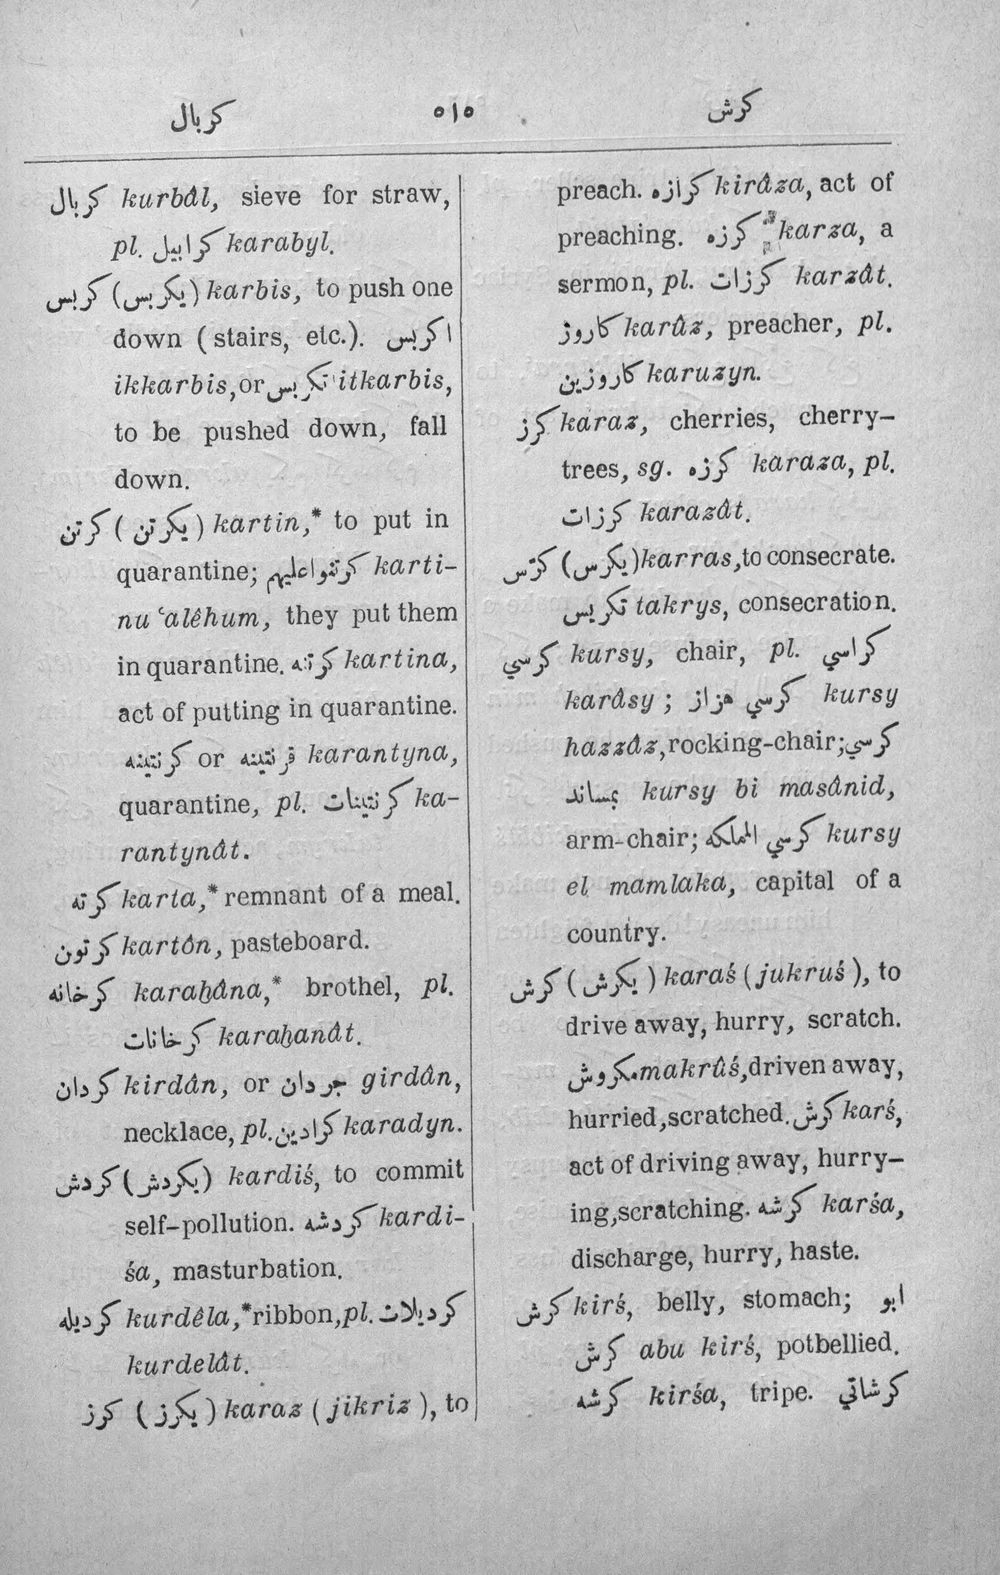 كربال ٥١٥ كرش
كربال kurbâl, sieve for straw,
pl. كرابيل karabyl.
كربس (يكربس) karbis, to push one
down (stairs, etc.). اكربس
ikkarbis, or تكربس itkarbis,
to be pushed down, fall
down.
كرتن (يكرتن) kartin,* to put in
quarantine; كرتنواعليهم karti-
nu ʿalêhum, they put them
in quarantine. كرتنه kartina,
act of putting in quarantine.
كرنتينه or قرنتينه karantyna,
quarantine, pl. كرنتينات ka-
rantynât.
كرته karta,* remnant of a meal.
كرتون kartôn, pasteboard.
كرخانه karaḫâna,* brothel, pl.
كرخانات karaḫanât.
كردان kirdân, or جردان girdân,
necklace, pl. كرادين karadyn.
كردش (يكردش) kardiś, to commit
self-pollution. كردشه kardi-
śa, masturbation.
كرديله kurdêla,* ribbon, pl. كرديلات
kurdelât.
كرز (يكرز) karaz (jikriz), to
preach. كرازه kirâza, act of
preaching. كرزه karza, a
sermon, pl. كرزات karzât.
كاروز karûz, preacher, pl.
كاروزين karuzyn.
كرز karaz, cherries, cherry-
trees, sg. كرزه karaza, pl.
كرزات karazât.
كرّس (يكرس) karras, to consecrate.
تكريس takrys, consecration.
كرسي kursy, chair, pl. كراسي
karâsy; كرسي هزاز kursy
hazzâz, rocking-chair; كرسي
بمساند kursy bi masânid,
arm-chair; كرسي المملكه kursy
el mamlaka, capital of a
country.
كرش (يكرش) karaś (jukruś), to
drive away, hurry, scratch.
مكروش makrûś, driven away,
hurried, scratched. كرش karś,
act of driving away, hurry-
ing, scratching. كرشه karśa,
discharge, hurry, haste.
كرش kirś, belly, stomach; ابو
كرش abu kirś, potbellied.
كرشه kirśa, tripe. كرشاتي